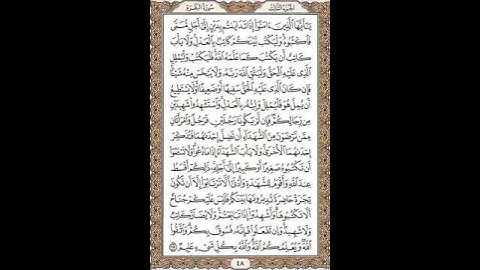 الجزء الثالث
سورة البقرة
يَٰٓأَيُّهَا ٱلَّذِينَ ءَامَنُوٓاْ إِذَا تَدَايَنتُم بِدَيۡنٍ إِلَىٰٓ أَجَلٖ مُّسَمّٗى
فَٱكۡتُبُوهُۚ وَلۡيَكۡتُب بَّيۡنَكُمۡ كَاتِبُۢ بِٱلۡعَدۡلِۚ وَلَا يَأۡبَ
كَاتِبٌ أَن يَكۡتُبَ كَمَا عَلَّمَهُ ٱللَّهُۚ فَلۡيَكۡتُبۡ وَلۡيُمۡلِلِ
ٱلَّذِي عَلَيۡهِ ٱلۡحَقُّ وَلۡيَتَّقِ ٱللَّهَ رَبَّهُۥ وَلَا يَبۡخَسۡ مِنۡهُ شَيۡـٔٗاۚ
فَإِن كَانَ ٱلَّذِي عَلَيۡهِ ٱلۡحَقُّ سَفِيهًا أَوۡ ضَعِيفًا أَوۡ لَا يَسۡتَطِيعُ
أَن يُمِلَّ هُوَ فَلۡيُمۡلِلۡ وَلِيُّهُۥ بِٱلۡعَدۡلِۚ وَٱسۡتَشۡهِدُواْ شَهِيدَيۡنِ
مِن رِّجَالِكُمۡۖ فَإِن لَّمۡ يَكُونَا رَجُلَيۡنِ فَرَجُلٞ وَٱمۡرَأَتَانِ
مِمَّن تَرۡضَوۡنَ مِنَ ٱلشُّهَدَآءِ أَن تَضِلَّ إِحۡدَىٰهُمَا فَتُذَكِّرَ
إِحۡدَىٰهُمَا ٱلۡأُخۡرَىٰۚ وَلَا يَأۡبَ ٱلشُّهَدَآءُ إِذَا مَا دُعُواْۚ وَلَا تَسۡـَٔمُوٓاْ
أَن تَكۡتُبُوهُ صَغِيرًا أَوۡ كَبِيرًا إِلَىٰٓ أَجَلِهِۦۚ ذَٰلِكُمۡ أَقۡسَطُ
عِندَ ٱللَّهِ وَأَقۡوَمُ لِلشَّهَٰدَةِ وَأَدۡنَىٰٓ أَلَّا تَرۡتَابُوٓاْ إِلَّآ أَن تَكُونَ
تِجَٰرَةً حَاضِرَةٗ تُدِيرُونَهَا بَيۡنَكُمۡ فَلَيۡسَ عَلَيۡكُمۡ جُنَاحٌ
أَلَّا تَكۡتُبُوهَاۗ وَأَشۡهِدُوٓاْ إِذَا تَبَايَعۡتُمۡۚ وَلَا يُضَآرَّ كَاتِبٞ
وَلَا شَهِيدٞۚ وَإِن تَفۡعَلُواْ فَإِنَّهُۥ فُسُوقُۢ بِكُمۡۗ وَٱتَّقُواْ
ٱللَّهَۖ وَيُعَلِّمُكُمُ ٱللَّهُۗ وَٱللَّهُ بِكُلِّ شَيۡءٍ عَلِيمٞ ٢٨٢
٤٨